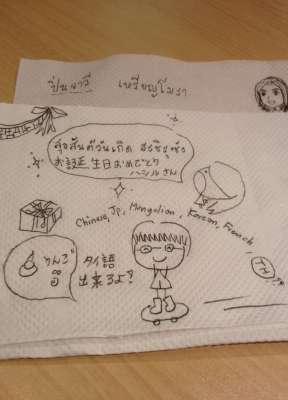 ปิ่นจารี เหรียญโมรา
สุขสันต์วันเกิด ฮะชิรุซัง
お誕生日おめでとう
ハシルさん
Chinese, Jp, Mongolian, Korean, French
うんこ
อึ
タイ語
出来るよ?